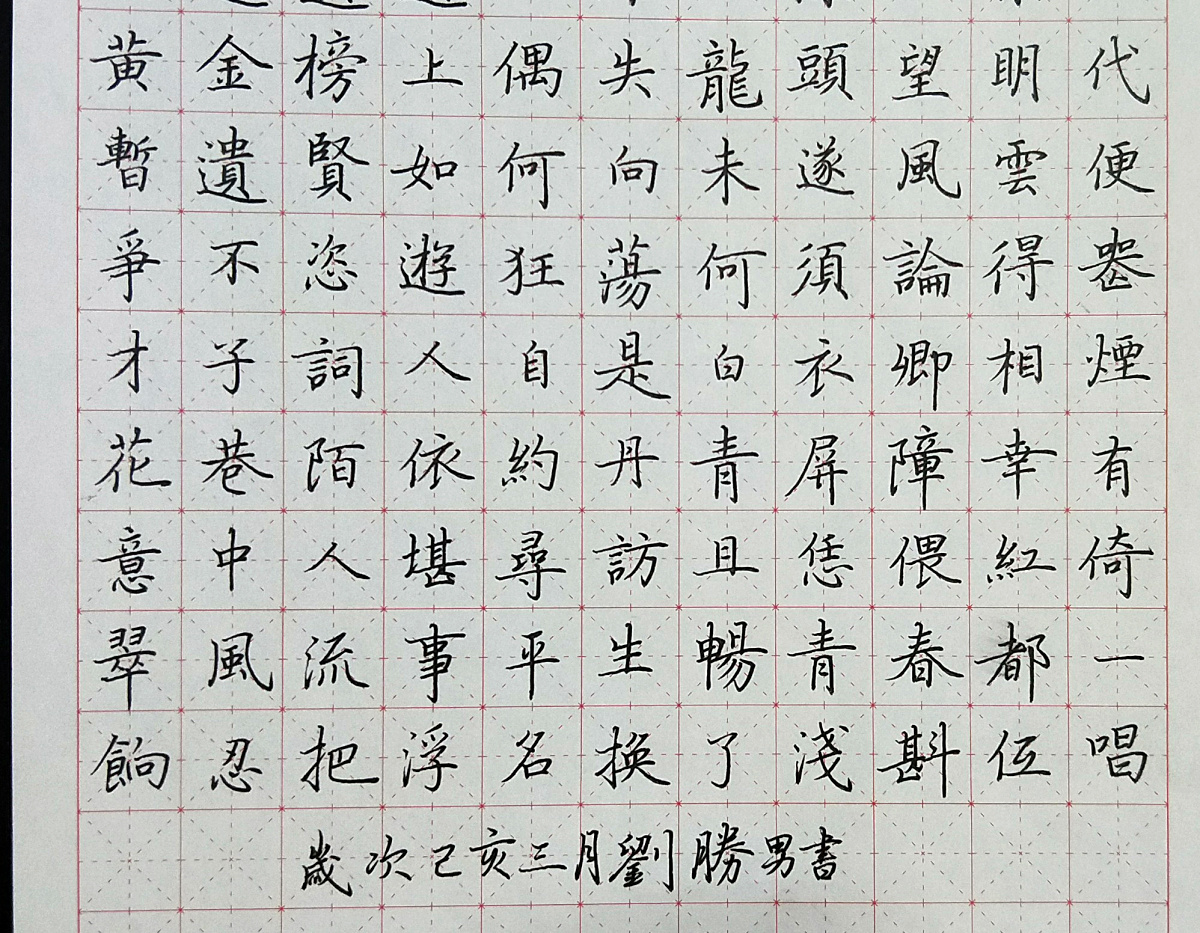 黃金榜上偶失龍頭望明代
暫遺賢如何向未遂風雲便
爭不恣遊狂蕩何須論得喪
才子詞人自是白衣卿相煙
花巷陌依約丹青屏障幸有
意中人堪尋訪且恁偎紅倚
翠風流事平生暢青春都一
餉忍把浮名換了淺斟低唱
歲次己亥三月劉勝男書